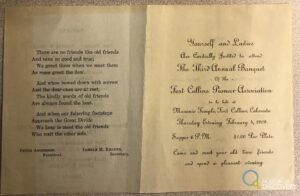 There are no friends like old friends
And none so good and true;
We greet them when we meet them
As roses greet the dew.
And when bowed down with sorrow
And the dear ones are at rest;
The kindly words of old friends
Are always found the best.
And when our faltering footsteps
Approach the Great Divide
We long to meet the old friends
Who wait the other side.
President.
Secretary.
Yourself and Ladies
Are Cordially Invited to attend
The Third Annual Banquet
Of the
Fort Collins Pioneer Association
to be held at
Masonic Temple, Fort Collins, Colorado
Thursday Evening February
Supper 6 P.M.
$1.00 Per Plate
Come and meet your old time friends
and spend a pleasant evening